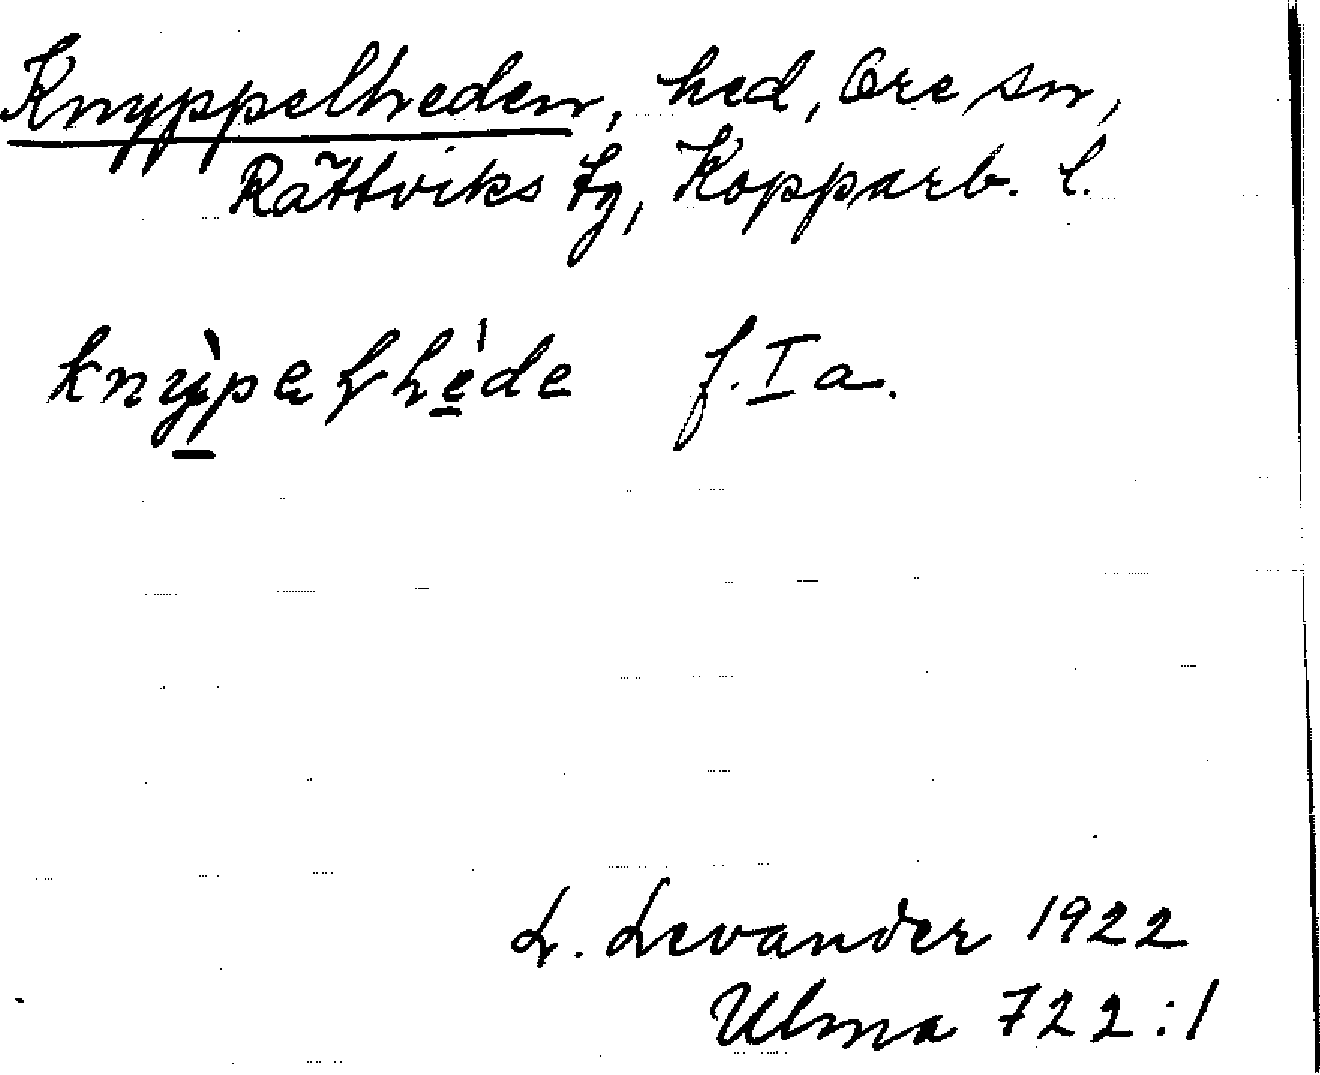 Knyppelheden, hed, Ore sn,
Rättviks tg, Kopparb. l.
f. I a.
L. Levander 1922
Ulma 722:1